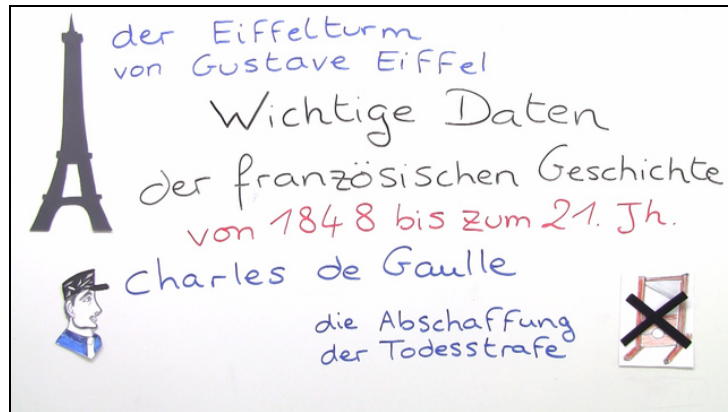 der Eiffelturm
von Gustave Eiffel
Wichtige Daten
der französischen Geschichte
von 1848 bis zum 21. Jh.
Charles de Gaulle
die Abschaffung
der Todesstrafe